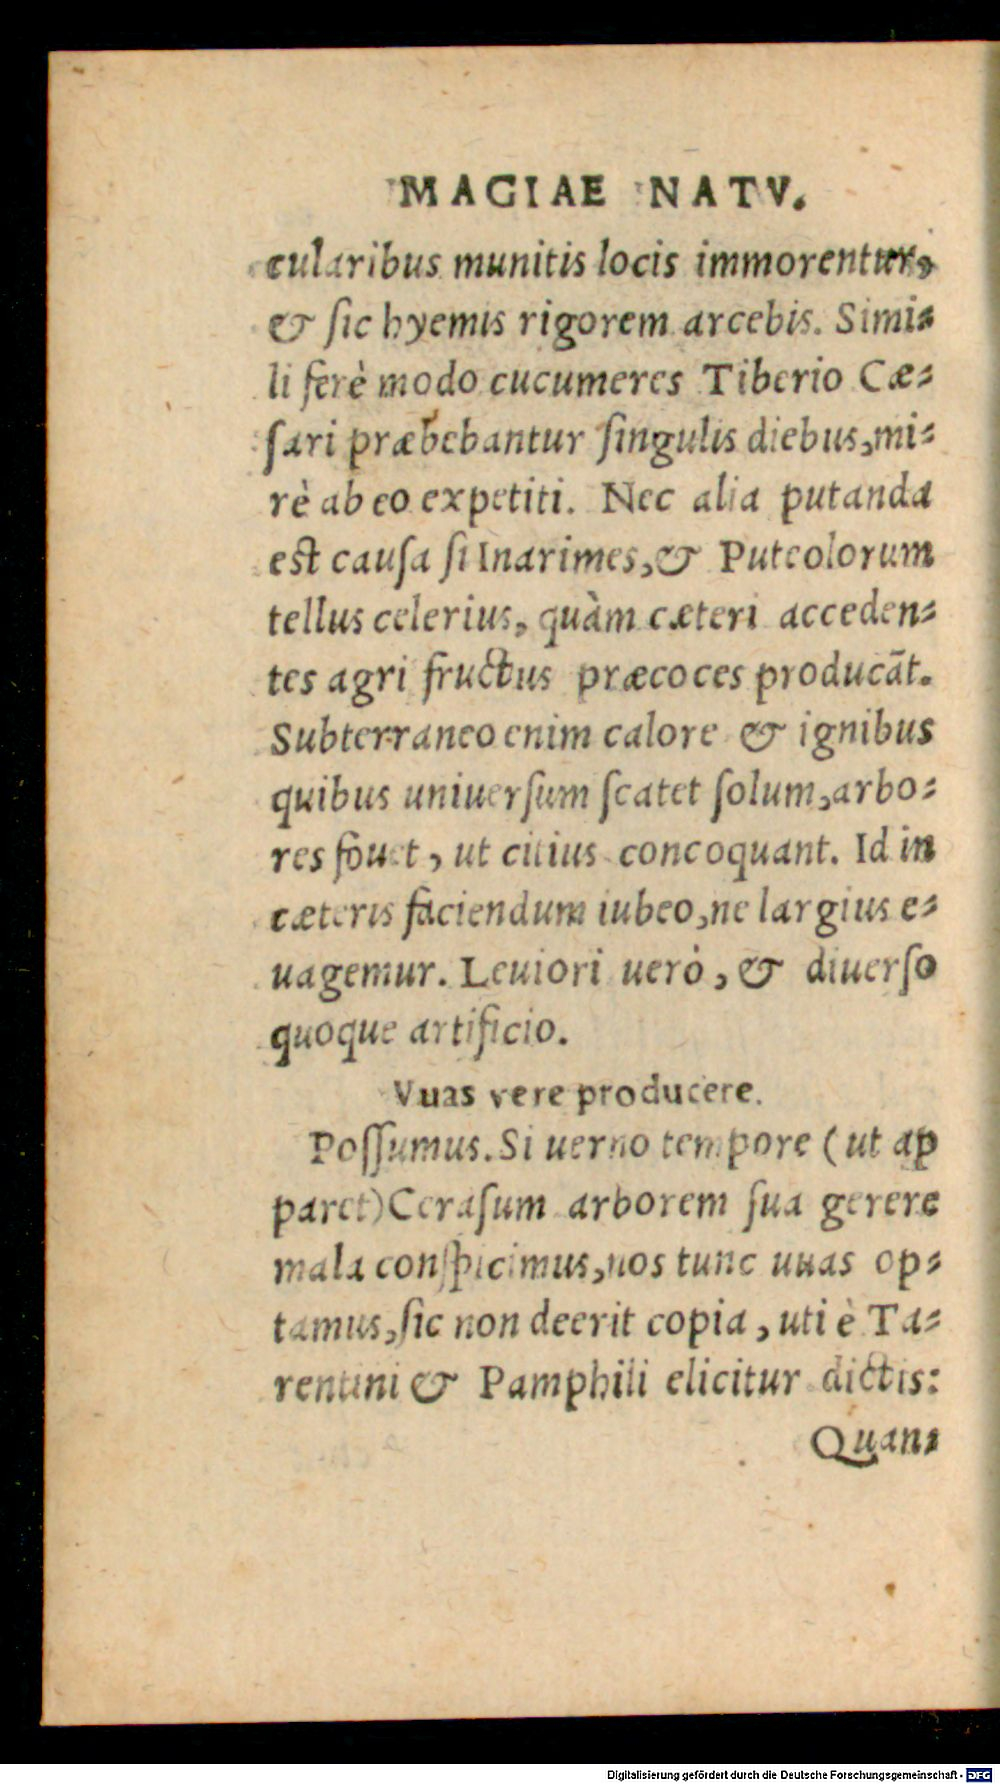 MAGIAE NATV.
cularibus munitis locis immorentur,
& ſic hyemis rigorem arcebis. Simi-
li ferè modo cucumeres Tiberio Cæ-
ſari præbebantur ſingulis diebus, mi-
rè ab eo expetiti. Nec alia putanda
est cauſa ſi Inarimes, & Puteolorum
tellus celerius, quàm cæteri acceden-
tes agri fructus præcoces producāt.
Subterraneo enim calore & ignibus
quibus uniuerſum ſcatet ſolum, arbo-
res fouet, ut citius concoquant. Id in
cæteris faciendum iubeo, ne largius e-
uagemur. Leuiori uerò, & diuerſo
quoque artificio.
Vuas vere producere.
Poſſumus. Si uerno tempore (ut ap
paret) Ceraſum arborem ſua gerere
mala conſpicimus, nos tunc uuas op-
tamus, ſic non deerit copia, uti è Ta-
rentini & Pamphili elicitur dictis:
Quan-
Digitalisierung gefördert durch die Deutsche Forschungsgemeinschaft - DFG